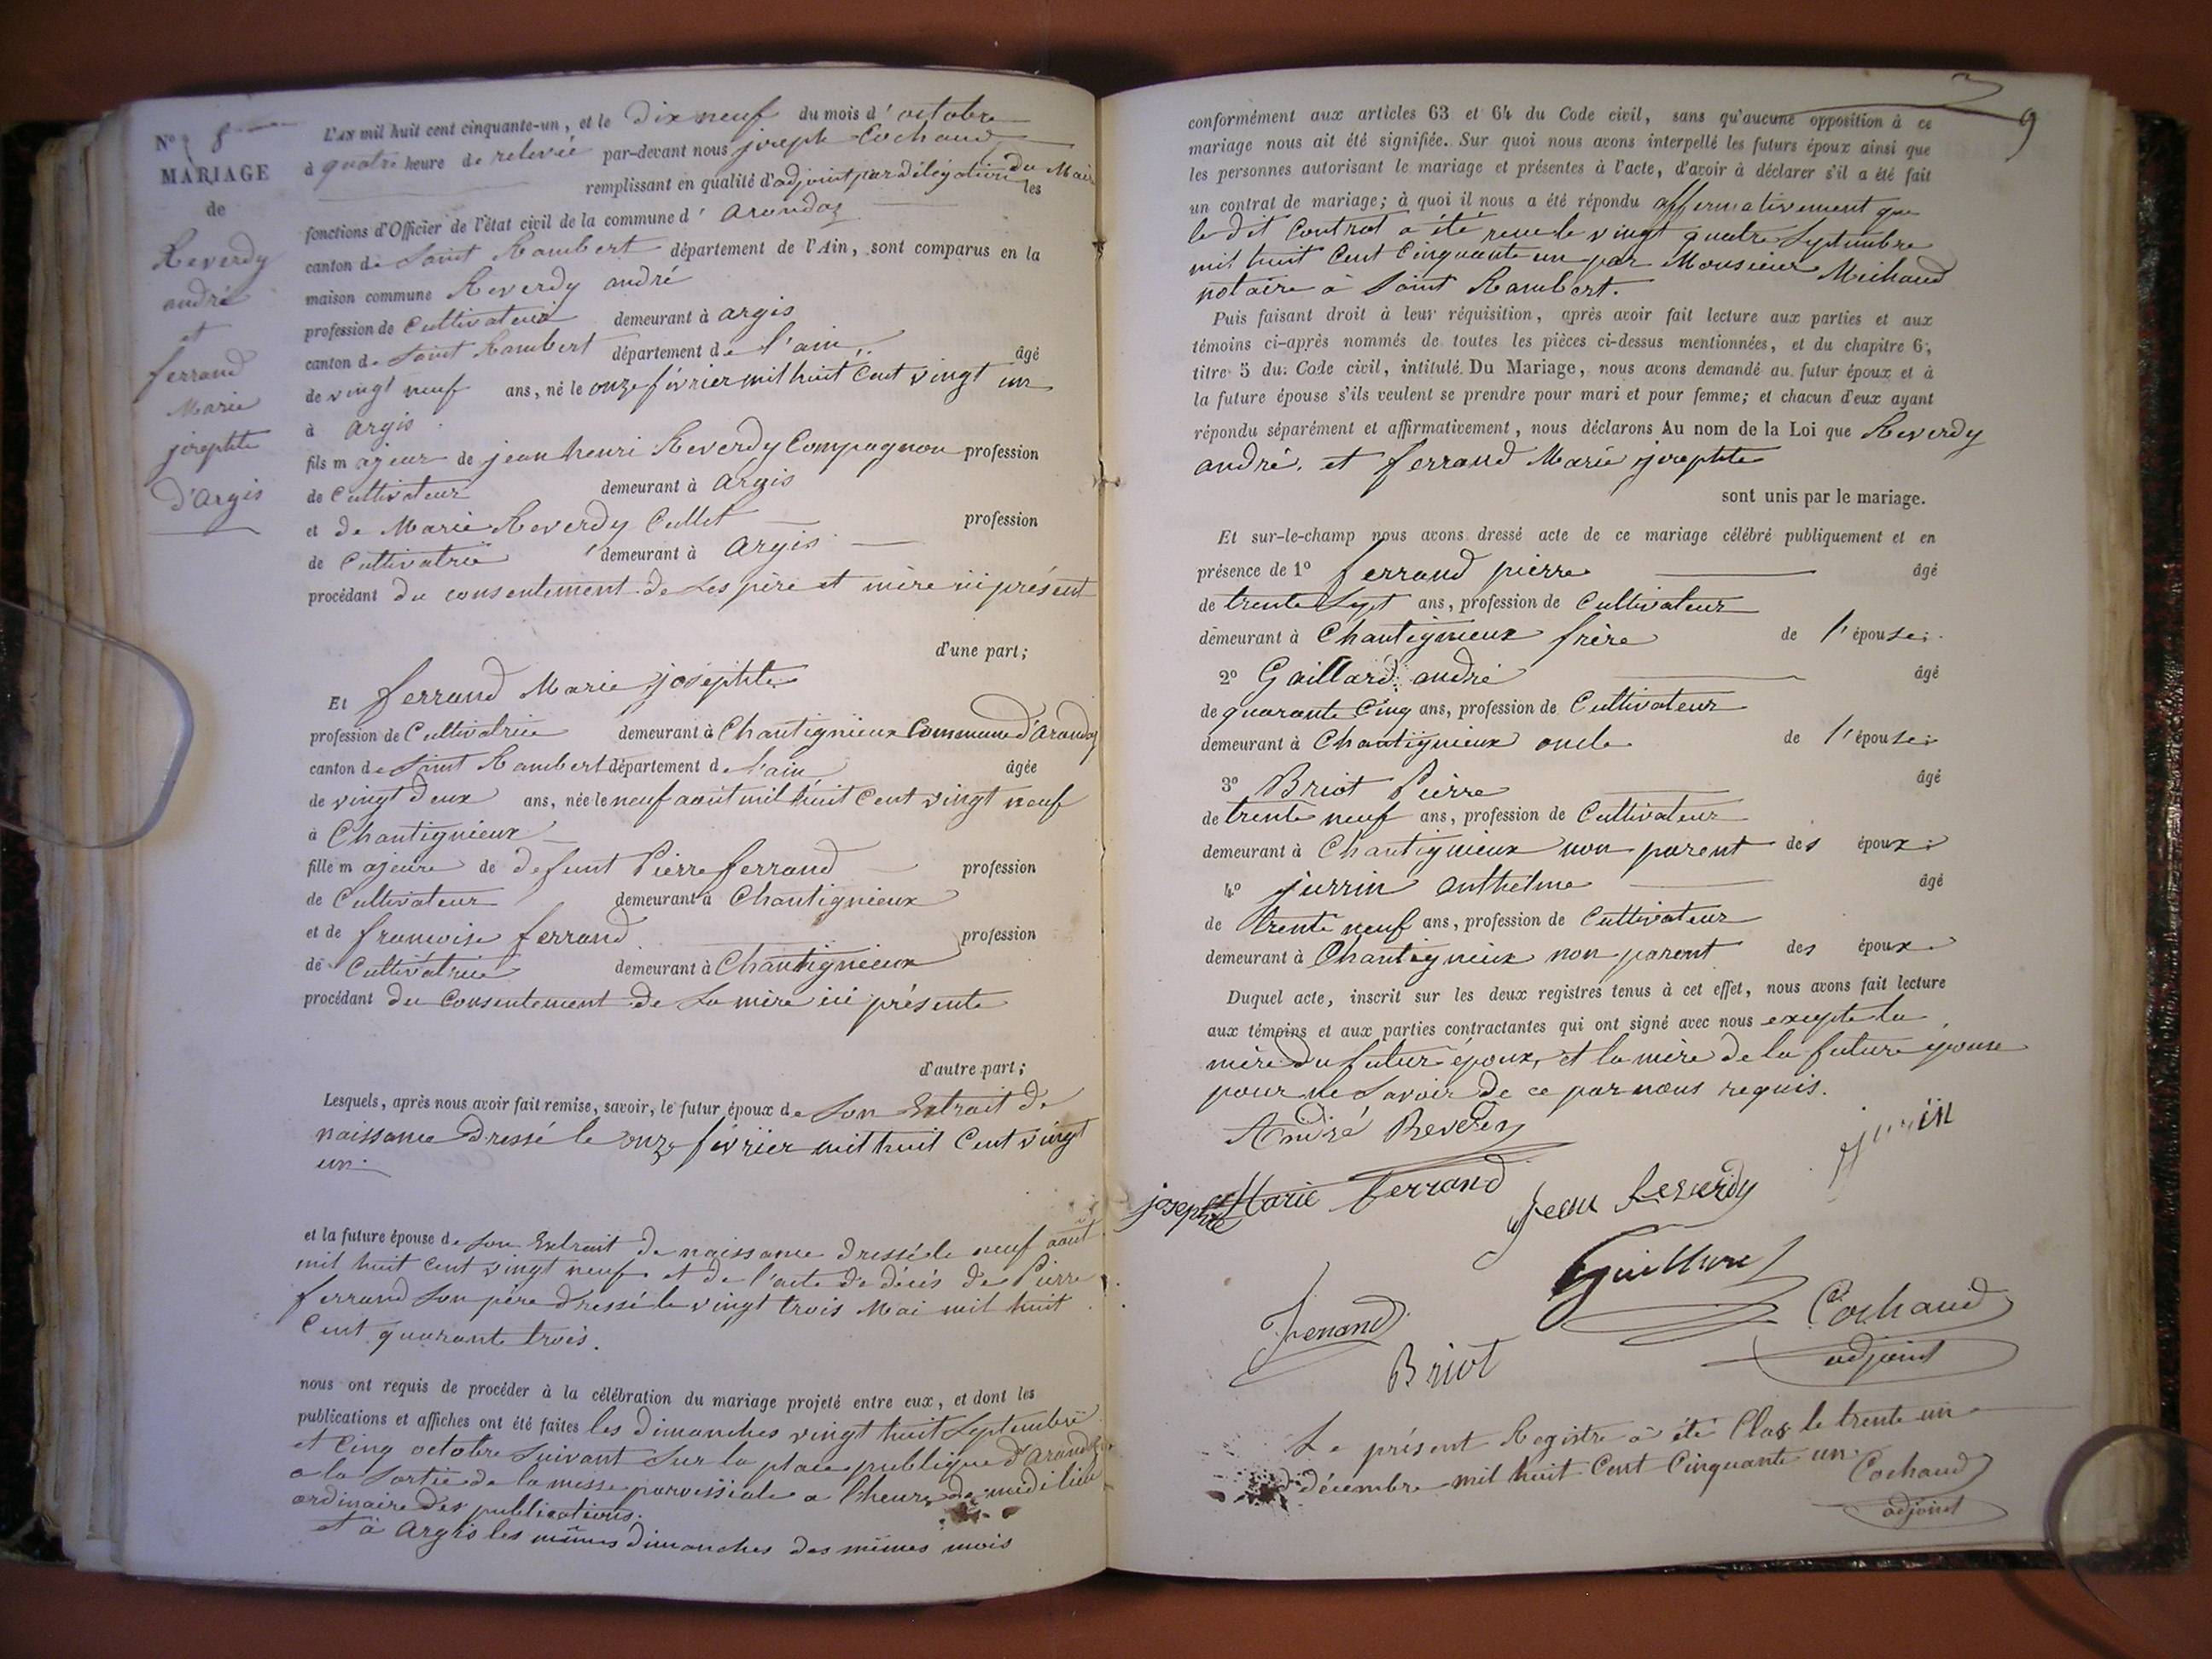 N° 8
MARIAGE
de
Reverdy
andré
et
ferrand
Marie
josephte
d'Argis
L'AN mil huit cent cinquante-un, et le dix neuf du mois d'octobre
à quatre heure de relevée par-devant nous joseph Cochaud
remplissant en qualité d'adjoint par délégation du Maire les
fonctions d'Officier de l'état civil de la commune d'arandas
canton de Saint Rambert département de l'Ain, sont comparus en la
maison commune Reverdy andré
profession de Cultivateur demeurant à argis
canton de Saint Rambert département de l'ain, âgé
de vingt neuf ans, né le onze février mil huit Cent vingt un
à argis
fils majeur de jean henri Reverdy Compagnon profession
de Cultivateur demeurant à argis
et de Marie Reverdy Cullet profession
de Cultivatrice demeurant à argis
procédant du consentement de ses père et mère ici présent
d'une part;
Et ferrand Marie josephte
profession de Cultivatrice demeurant à Chantignieux Commune d'Arandas
canton de Saint Rambert département de l'ain âgée
de vingt deux ans, née le neuf août mil huit Cent vingt neuf
à Chantignieux
fille majeure de defunt Pierre ferrand profession
de Cultivateur demeurant à Chantignieux
et de francoise ferrand profession
de Cultivatrice demeurant à Chantignieux
procédant du Consentement de Sa mère ici présente
d'autre part;
Lesquels, après nous avoir fait remise, savoir, le futur époux de Son Extrait de
naissance Dressé le onze février mil huit Cent vingt
un.
et la future épouse de son Extrait de naissance dressé le neuf août
mil huit Cent vingt neuf et de l'acte de décès de Pierre
ferrand Son père dressé le vingt trois Mai mil huit
Cent quarante trois.
nous ont requis de procéder à la célébration du mariage projeté entre eux, et dont les
publications et affiches ont été faites les dimanches vingt huit Septembre
et Cinq octobre Suivant Sur la place publique d'arandas
a la Sortie de la messe paroissiale a l'heure de midi lieu
ordinaire des publications.
et à Argis les mêmes dimanches des mêmes mois
9
conformément aux articles 63 et 64 du Code civil, sans qu'aucune opposition à ce
mariage nous ait été signifiée. Sur quoi nous avons interpellé les futurs époux ainsi que
les personnes autorisant le mariage et présentes à l'acte, d'avoir à déclarer s'il a été fait
un contrat de mariage; à quoi il nous a été répondu affermativement que
le dit Contrat a été recu le vingt quatre Septembre
mil huit Cent Cinquante un par Monsieur Michaud
notaire à Saint Rambert.
Puis faisant droit à leur réquisition, après avoir fait lecture aux parties et aux
témoins ci-après nommés de toutes les pièces ci-dessus mentionnées, et du chapitre 6,
titre 5 du Code civil, intitulé Du Mariage, nous avons demandé au futur époux et à
la future épouse s'ils veulent se prendre pour mari et pour femme; et chacun d'eux ayant
répondu séparément et affirmativement, nous déclarons Au nom de la Loi que Reverdy
andré et ferrand Marie josephte
sont unis par le mariage.
Et sur-le-champ nous avons dressé acte de ce mariage célébré publiquement et en
présence de 1° ferrand pierre âgé
de trente Sept ans, profession de Cultivateur
demeurant à Chantignieux frère de l'épouse;
2° Gaillard andré âgé
de quarante Cinq ans, profession de Cultivateur
demeurant à Chantignieux oncle de l'épouse;
3° Briot Pierre âgé
de trente neuf ans, profession de Cultivateur
demeurant à Chantignieux non parent des époux;
4° jurrin anthelme âgé
de trente neuf ans, profession de Cultivateur
demeurant à Chantignieux non parent des époux
Duquel acte, inscrit sur les deux registres tenus à cet effet, nous avons fait lecture
aux témoins et aux parties contractantes qui ont signé avec nous excepte la
mère du futur époux, et la mère de la future épouse
pour ne Savoir de ce par nous requis.
André Reverdy
josephte Marie Ferrand
Jean Reverdy
Ferrand
Briot
Cochaud
adjoint
Le présent Registre a été Clos le trente un
décembre mil huit Cent Cinquante un. Cochaud
adjoint